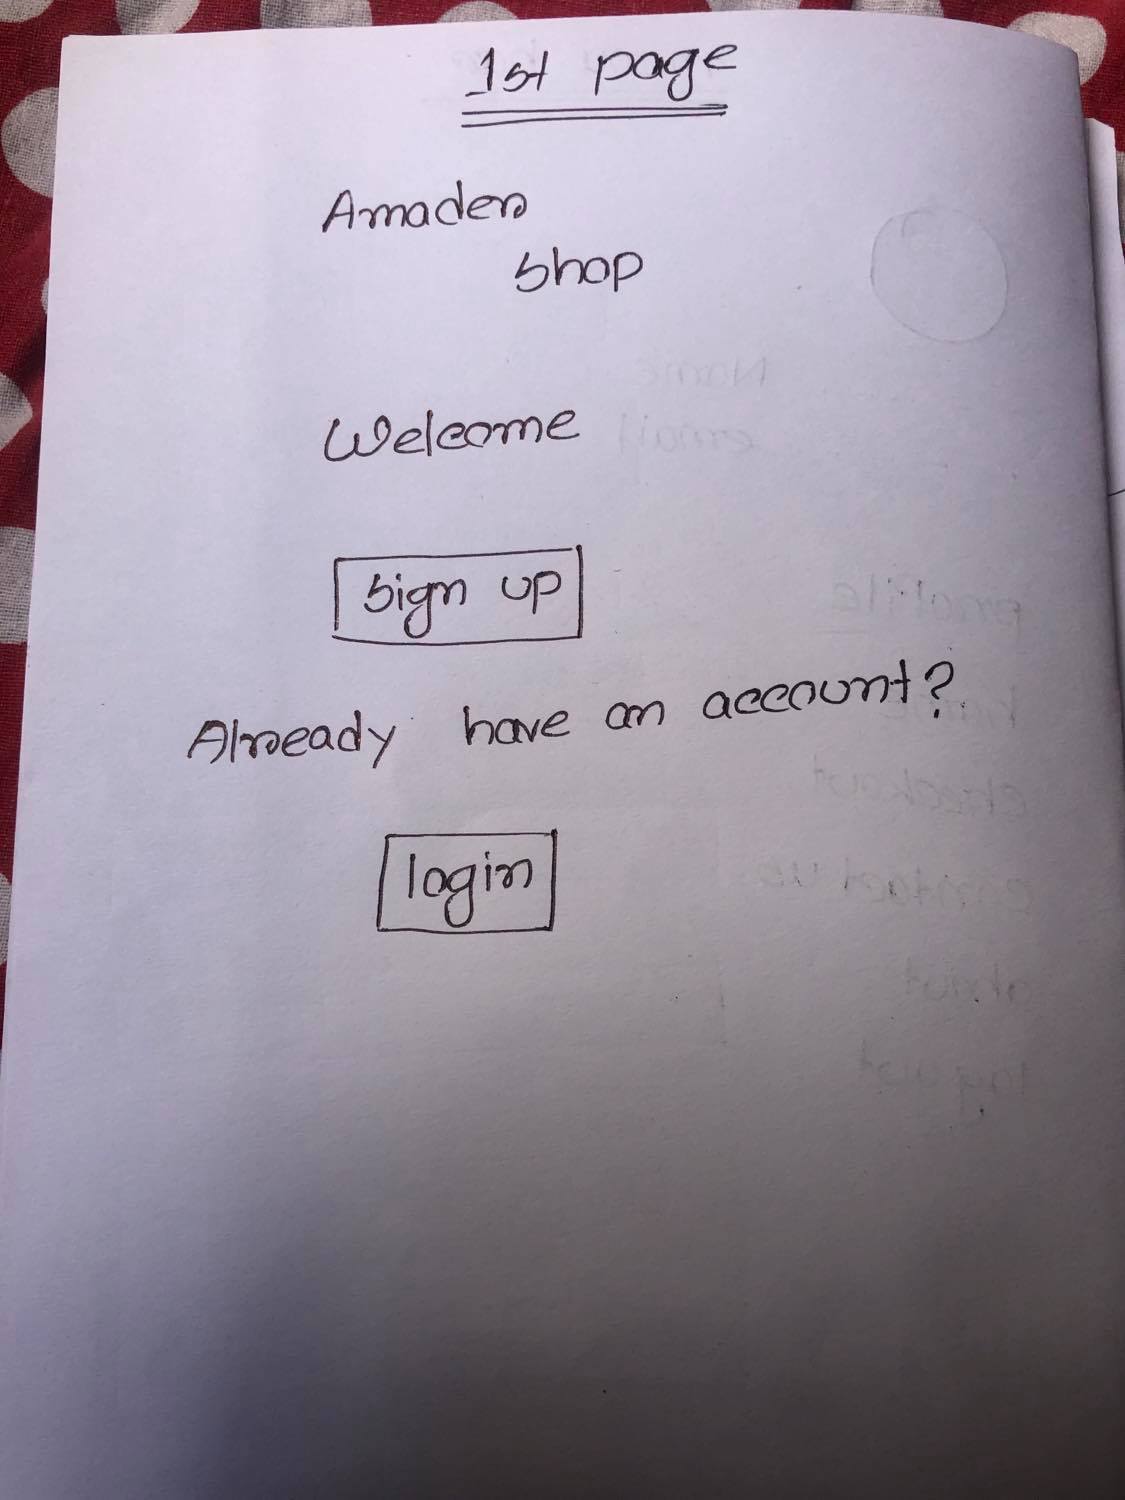 1st page
Amader
Shop
Welcome
Sign up
Already have an account?
login